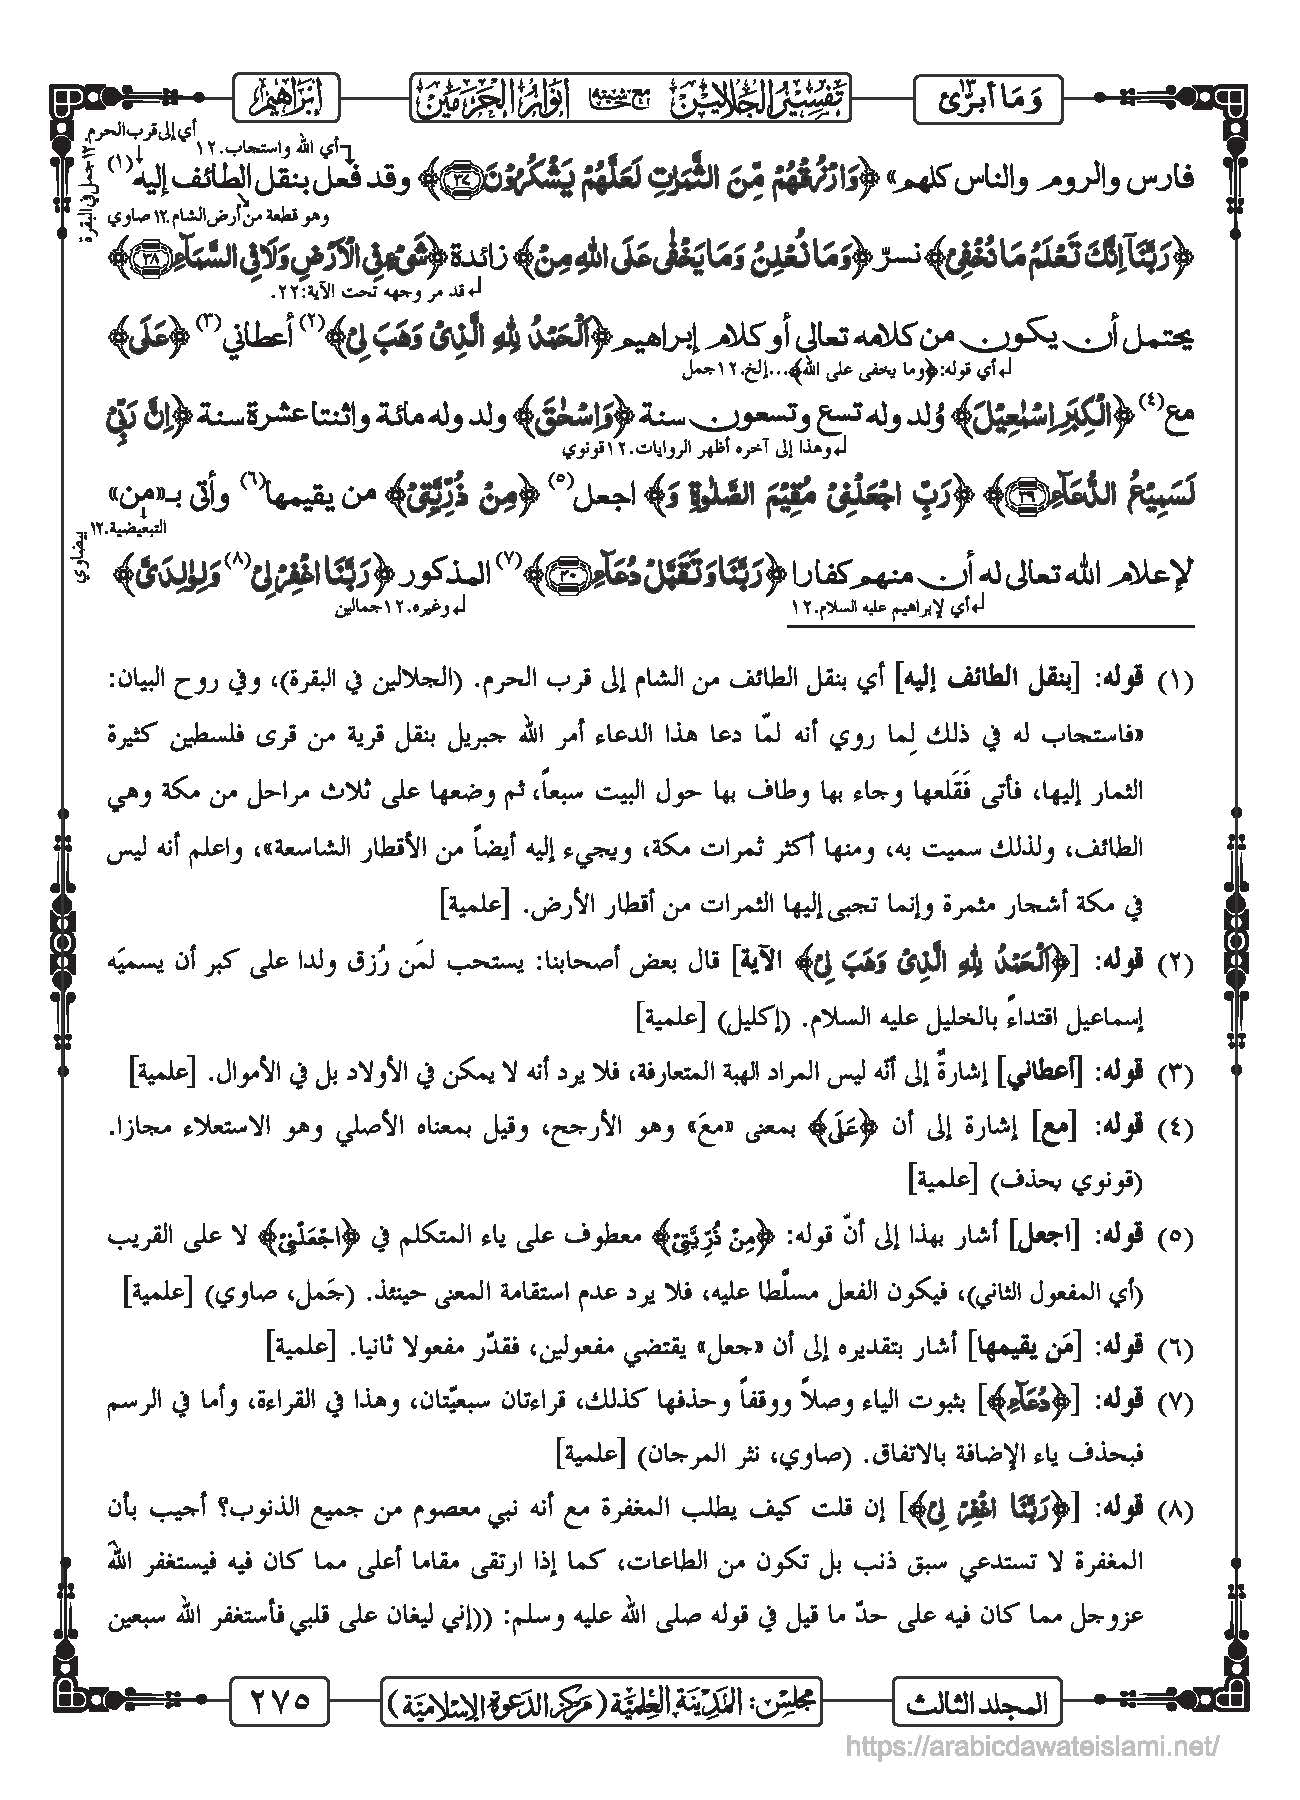 وَمَا أُبَرِّئُ ١٣
تفسير الجلالين مع حاشية أنوار الحرمين
إبراهيم
أي إلى قرب الحرم.
١٢ جمل في البقرة
أي الله واستجاب.١٢
فارس والروم والناس كلهم» ﴿وَارْزُقْهُمْ مِّنَ الثَّمَرٰتِ لَعَلَّهُمْ يَشْكُرُوْنَ ﴿٣٧﴾﴾ وقد فعل بنقل الطائف إليه(١)
وهو قطعة من أرض الشام.١٢ صاوي
﴿رَبَّنَاۤ اِنَّكَ تَعْلَمُ مَا نُخْفِیْ﴾ نسرّ ﴿وَمَا نُعْلِنُ وَمَا یَخْفٰى عَلَى اللّٰهِ مِنْ﴾ زائدة ﴿شَیْءٍ فِی الْاَرْضِ وَلَا فِی السَّمَآءِ ﴿٣٨﴾﴾
قد مر وجهه تحت الآية:٢٢.
يحتمل أن يكون من كلامه تعالى أو كلام إبراهيم ﴿اَلْحَمْدُ لِلّٰهِ الَّذِیْ وَهَبَ لِیْ﴾(٢) أعطاني(٣) ﴿عَلَى﴾
أي قوله: ﴿وما يخفى على الله﴾...إلخ.١٢جمل
مع(٤) ﴿الْكِبَرِ اِسْمٰعِیْلَ﴾ وُلد وله تسع وتسعون سنة ﴿وَاِسْحٰقَ﴾ ولد وله مائة واثنتا عشرة سنة ﴿اِنَّ رَبِّیْ
وهذا إلى آخره أظهر الروايات.١٢قونوي
لَسَمِیْعُ الدُّعَآءِ ﴿٣٩﴾﴾ ﴿رَبِّ اجْعَلْنِیْ مُقِیْمَ الصَّلٰوةِ وَ﴾ اجعل(٥) ﴿مِنْ ذُرِّیَّتِیْ﴾ من يقيمها(٦) وأتى بـ«من»
التبعيضية.١٢
بيضاوي
لإعلام الله تعالى له أن منهم كفارا ﴿رَبَّنَا وَتَقَبَّلْ دُعَآءِ ﴿٤٠﴾﴾(٧) المذكور ﴿رَبَّنَا اغْفِرْ لِیْ(٨) وَلِوَالِدَیَّ﴾
أي لإبراهيم عليه السلام.١٢
وغيره.١٢جمالين
(١) قوله: [بنقل الطائف إليه] أي بنقل الطائف من الشام إلى قرب الحرم. (الجلالين في البقرة)، وفي روح البيان:
«فاستجاب له في ذلك لِما روي أنه لمّا دعا هذا الدعاء أمر الله جبريل بنقل قرية من قرى فلسطين كثيرة
الثمار إليها، فأتى فَقَلعها وجاء بها وطاف بها حول البيت سبعاً، ثم وضعها على ثلاث مراحل من مكة وهي
الطائف، ولذلك سميت به، ومنها أكثر ثمرات مكة، ويجيء إليه أيضاً من الأقطار الشاسعة»، واعلم أنه ليس
في مكة أشجار مثمرة وإنما تجبى إليها الثمرات من أقطار الأرض. [علمية]
(٢) قوله: [﴿اَلْحَمْدُ لِلّٰهِ الَّذِیْ وَهَبَ لِیْ﴾ الآية] قال بعض أصحابنا: يستحب لمَن رُزق ولدا على كبر أن يسميَه
إسماعيل اقتداءً بالخليل عليه السلام. (إكليل) [علمية]
(٣) قوله: [أعطاني] إشارةٌ إلى أنّه ليس المراد الهبة المتعارفة، فلا يرد أنه لا يمكن في الأولاد بل في الأموال. [علمية]
(٤) قوله: [مع] إشارة إلى أن ﴿عَلَى﴾ بمعنى «معَ» وهو الأرجح، وقيل بمعناه الأصلي وهو الاستعلاء مجازا.
(قونوي بحذف) [علمية]
(٥) قوله: [اجعل] أشار بهذا إلى أنّ قوله: ﴿مِنْ ذُرِّیَّتِیْ﴾ معطوف على ياء المتكلم في ﴿اجْعَلْنِیْ﴾ لا على القريب
(أي المفعول الثاني)، فيكون الفعل مسلَّطا عليه، فلا يرد عدم استقامة المعنى حينئذ. (جَمل، صاوي) [علمية]
(٦) قوله: [مَن يقيمها] أشار بتقديره إلى أن «جعل» يقتضي مفعولين، فقدّر مفعولا ثانيا. [علمية]
(٧) قوله: [﴿دُعَآءِ﴾] بثبوت الياء وصلاً ووقفاً وحذفها كذلك، قراءتان سبعيّتان، وهذا في القراءة، وأما في الرسم
فبحذف ياء الإضافة بالاتفاق. (صاوي، نثر المرجان) [علمية]
(٨) قوله: [﴿رَبَّنَا اغْفِرْ لِیْ﴾] إن قلت كيف يطلب المغفرة مع أنه نبي معصوم من جميع الذنوب؟ أجيب بأن
المغفرة لا تستدعي سبق ذنب بل تكون من الطاعات، كما إذا ارتقى مقاما أعلى مما كان فيه فيستغفر اللهَ
عزوجل مما كان فيه على حدّ ما قيل في قوله صلى الله عليه وسلم: ((إني ليغان على قلبي فأستغفر الله سبعين
المجلد الثالث
مجلس: المدينة العلمية (مركز الدعوة الإسلامية)
٢٧٥
https://arabicdawateislami.net/